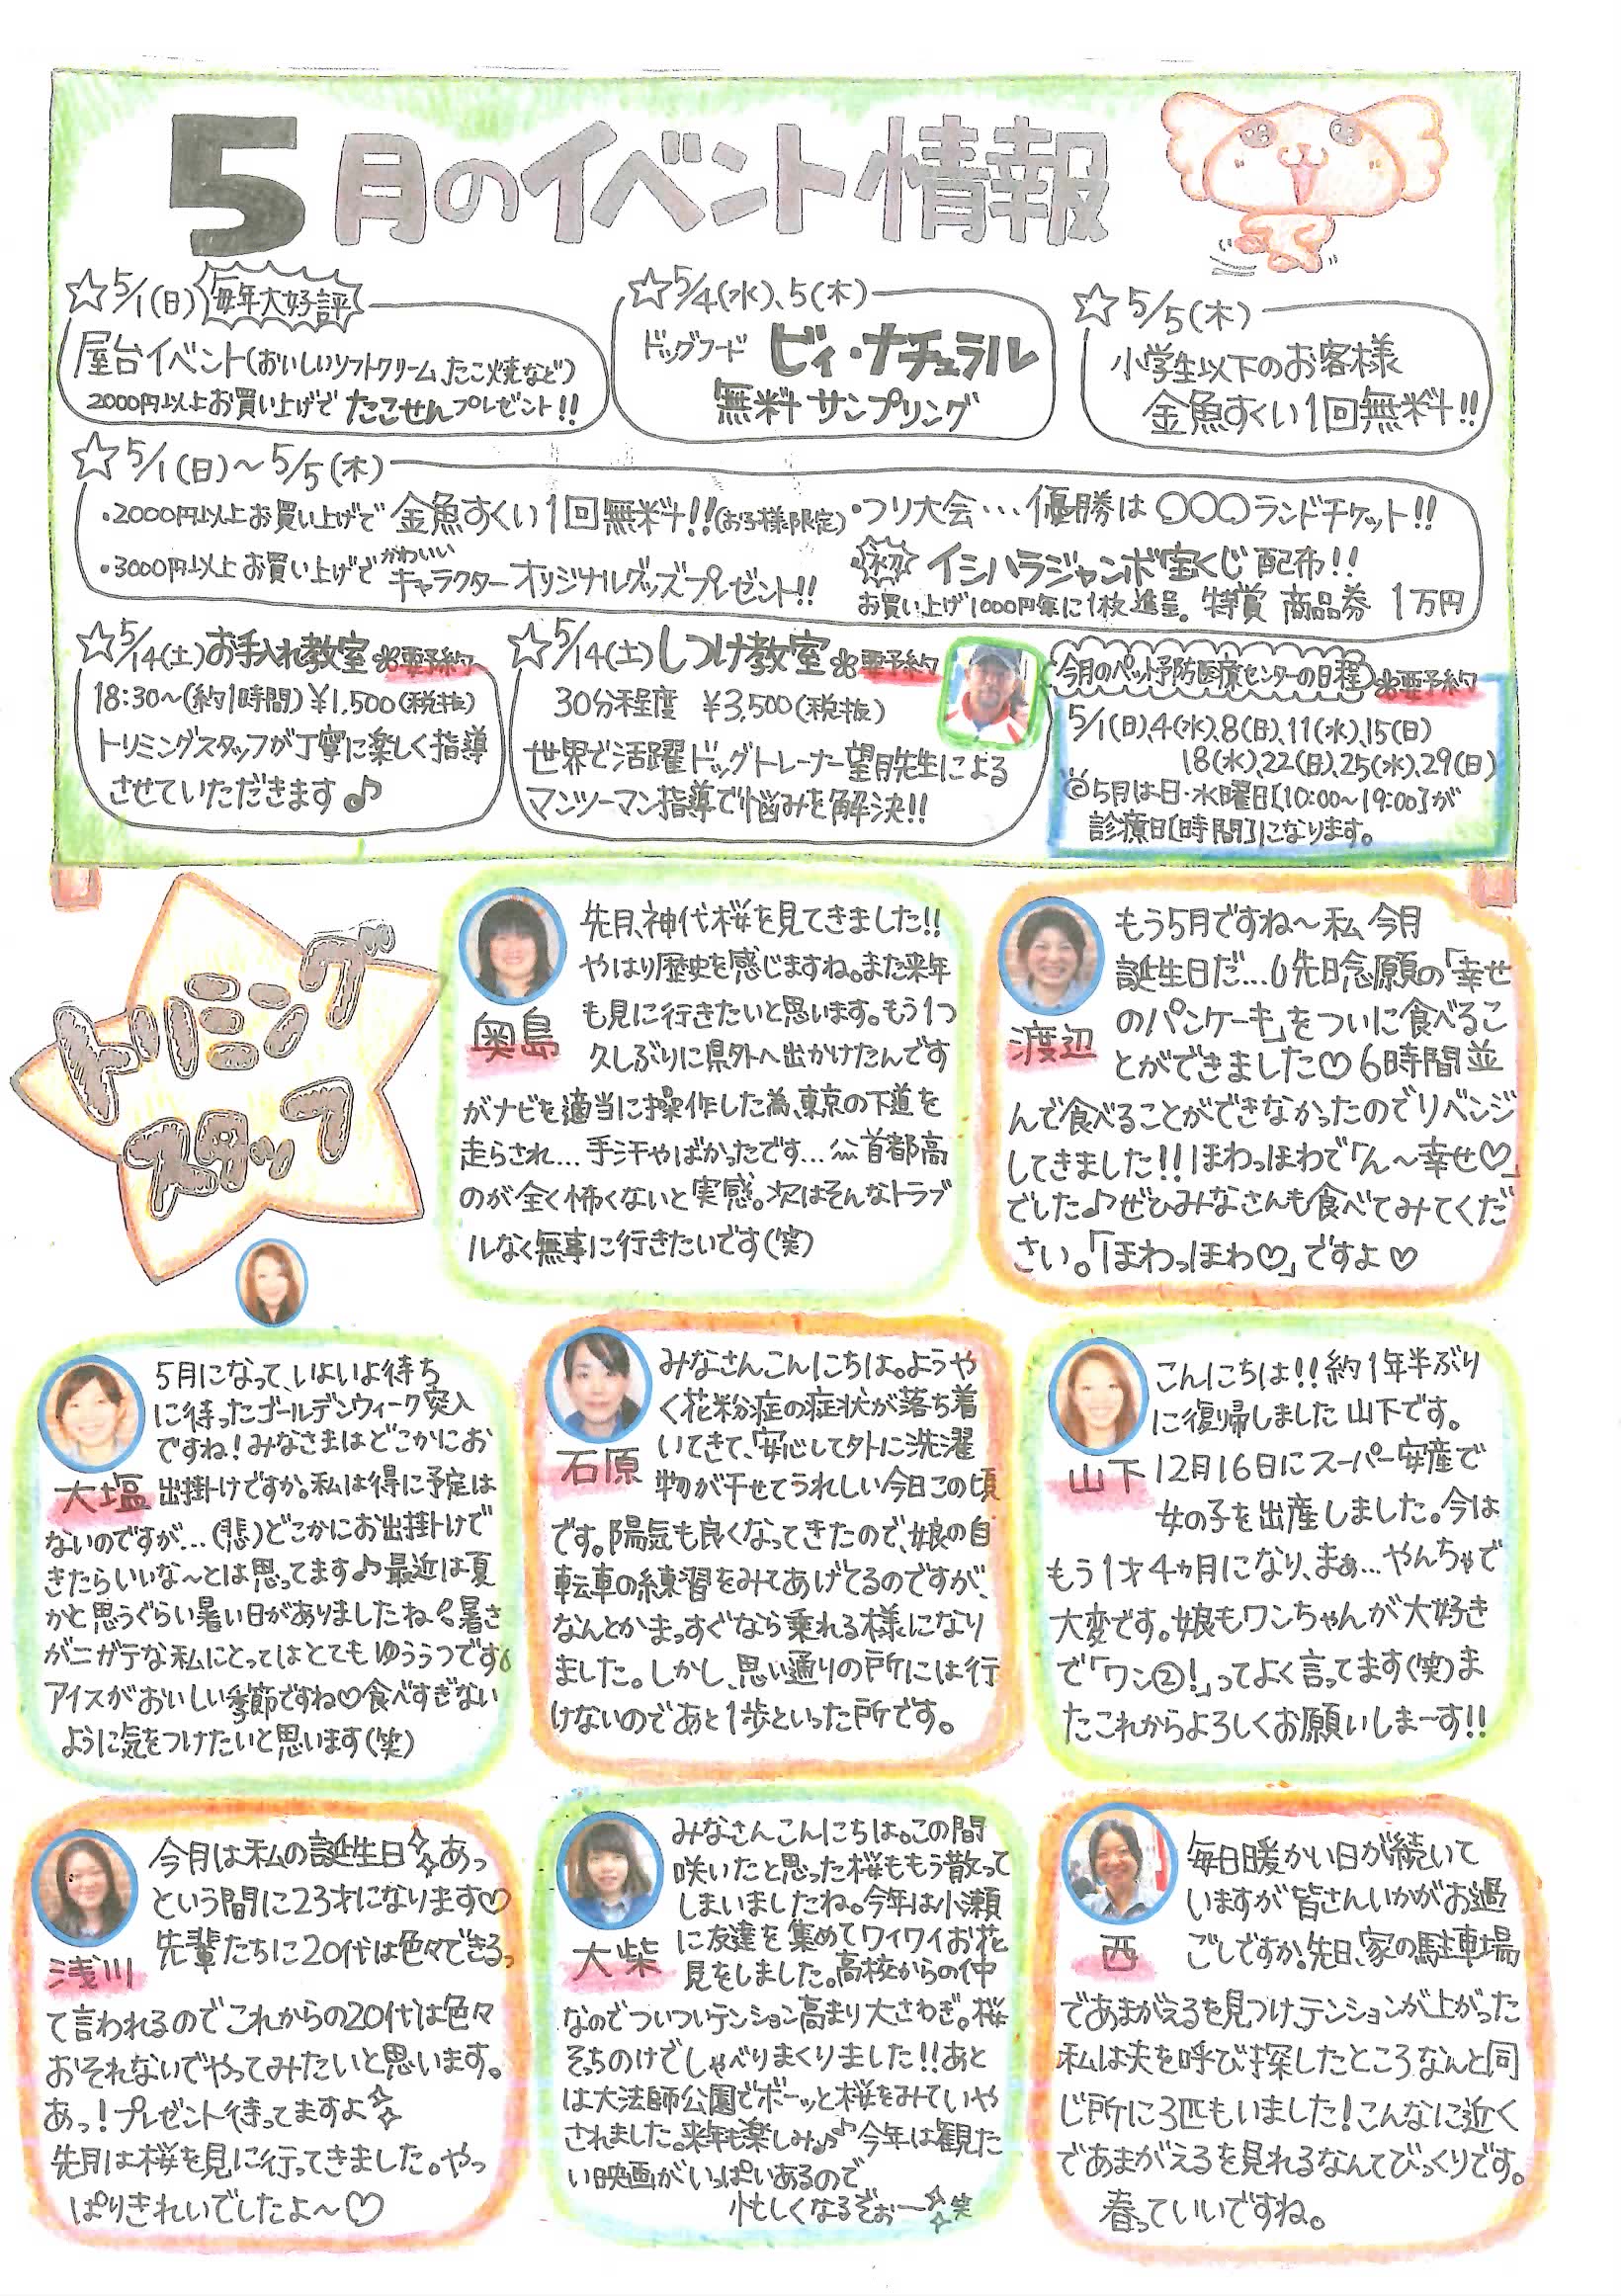 5月のイベント情報
☆5/1(日) 毎年大好評
屋台イベント(おいしいソフトクリーム、たこ焼など)
2000円以上お買い上げで たこせんプレゼント!!
☆5/4(水)、5(木)
ドッグフード ビィ・ナチュラル
無料サンプリング
☆5/5(木)
小学生以下のお客様
金魚すくい1回無料!!
☆5/1(日)～5/5(木)
・2000円以上お買い上げで 金魚すくい1回無料!!(お子様限定)
・3000円以上お買い上げで かわいい キャラクターオリジナルグッズプレゼント!!
・つり大会…優勝は○○○ランドチケット!!
イシハラジャンボ宝くじ配布!!
お買い上げ1000円毎に1枚進呈。特賞 商品券 1万円
☆5/14(土)お手入れ教室 ※要予約
18:30～(約1時間)¥1,500(税抜)
トリミングスタッフが丁寧に楽しく指導
させていただきます♪
☆5/14(土)しつけ教室 ※要予約
30分程度 ¥3,500(税抜)
世界で活躍ドッグトレーナー望月先生による
マンツーマン指導で悩みを解決!!
今月のペット予防医療センターの日程 ※要予約
5/1(日)、4(水)、8(日)、11(水)、15(日)
18(水)、22(日)、25(水)、29(日)
◎5月は日・水曜日[10:00～19:00]が
診療日[時間]になります。
トリミング
スタッフ
奥島
先月、神代桜を見てきました!!
やはり歴史を感じますね。また来年
も見に行きたいと思います。もう1つ
久しぶりに県外へ出かけたんです
がナビを適当に操作した為、東京の下道を
走らされ…手汗やばかったです…首都高
のが全く怖くないと実感。次はそんなトラブ
ルなく無事に行きたいです(笑)
渡辺
もう5月ですね～私、今月
誕生日だ…先日念願の「幸せ
のパンケーキ」をついに食べるこ
とができました♡6時間並
んで食べることができなかったのでリベンジ
してきました!!ほわっほわで「ん～幸せ♡」
でした♪ぜひみなさんも食べてみてくだ
さい。「ほわっほわ♡」ですよ♡
大塩
5月になって、いよいよ待ち
に待ったゴールデンウィーク突入
ですね!みなさまはどこかにお
出掛けですか。私は得に予定は
ないのですが…(悲)どこかにお出掛けで
きたらいいな～とは思ってます♪最近は夏
かと思うぐらい暑い日がありましたね。暑さ
がニガテな私にとってはとてもゆううつです
アイスがおいしい季節ですね♡食べすぎない
ように気をつけたいと思います(笑)
石原
みなさんこんにちは。ようや
く花粉症の症状が落ち着
いてきて、安心して外に洗濯
物が干せてうれしい今日この頃
です。陽気も良くなってきたので、娘の自
転車の練習をみてあげてるのですが、
なんとかまっすぐなら乗れる様になり
ました。しかし、思い通りの所には行
けないのであと1歩といった所です。
山下
こんにちは!!約1年半ぶり
に復帰しました山下です。
12月16日にスーパー安産で
女の子を出産しました。今は
もう1才4ヵ月になり、まぁ…やんちゃで
大変です。娘もワンちゃんが大好き
で「ワン②!」ってよく言ってます(笑)ま
たこれからよろしくお願いしまーす!!
浅川
今月は私の誕生日あっ
という間に23才になります♡
先輩たちに20代は色々できるっ
て言われるのでこれからの20代は色々
おそれないでやってみたいと思います。
あっ!プレゼント待ってますよ
先月は桜を見に行ってきました。やっ
ぱりきれいでしたよ～♡
大柴
みなさんこんにちは。この間
咲いたと思った桜ももう散って
しまいましたね。今年は小瀬
に友達を集めてワイワイお花
見をしました。高校からの仲
なのでついついテンション高まり大さわぎ。桜
そっちのけでしゃべりまくりました!!あと
は大法師公園でボーッと桜をみていや
されました。来年も楽しみ♪♪今年は観た
い映画がいっぱいあるので
忙しくなるぞぉー笑
西
毎日暖かい日が続いて
いますが皆さんいかがお過
ごしですか。先日、家の駐車場
であまがえるを見つけ、テンションが上がった
私は夫を呼び探したところなんと同
じ所に3匹もいました!こんなに近く
であまがえるを見れるなんてびっくりです。
春っていいですね。